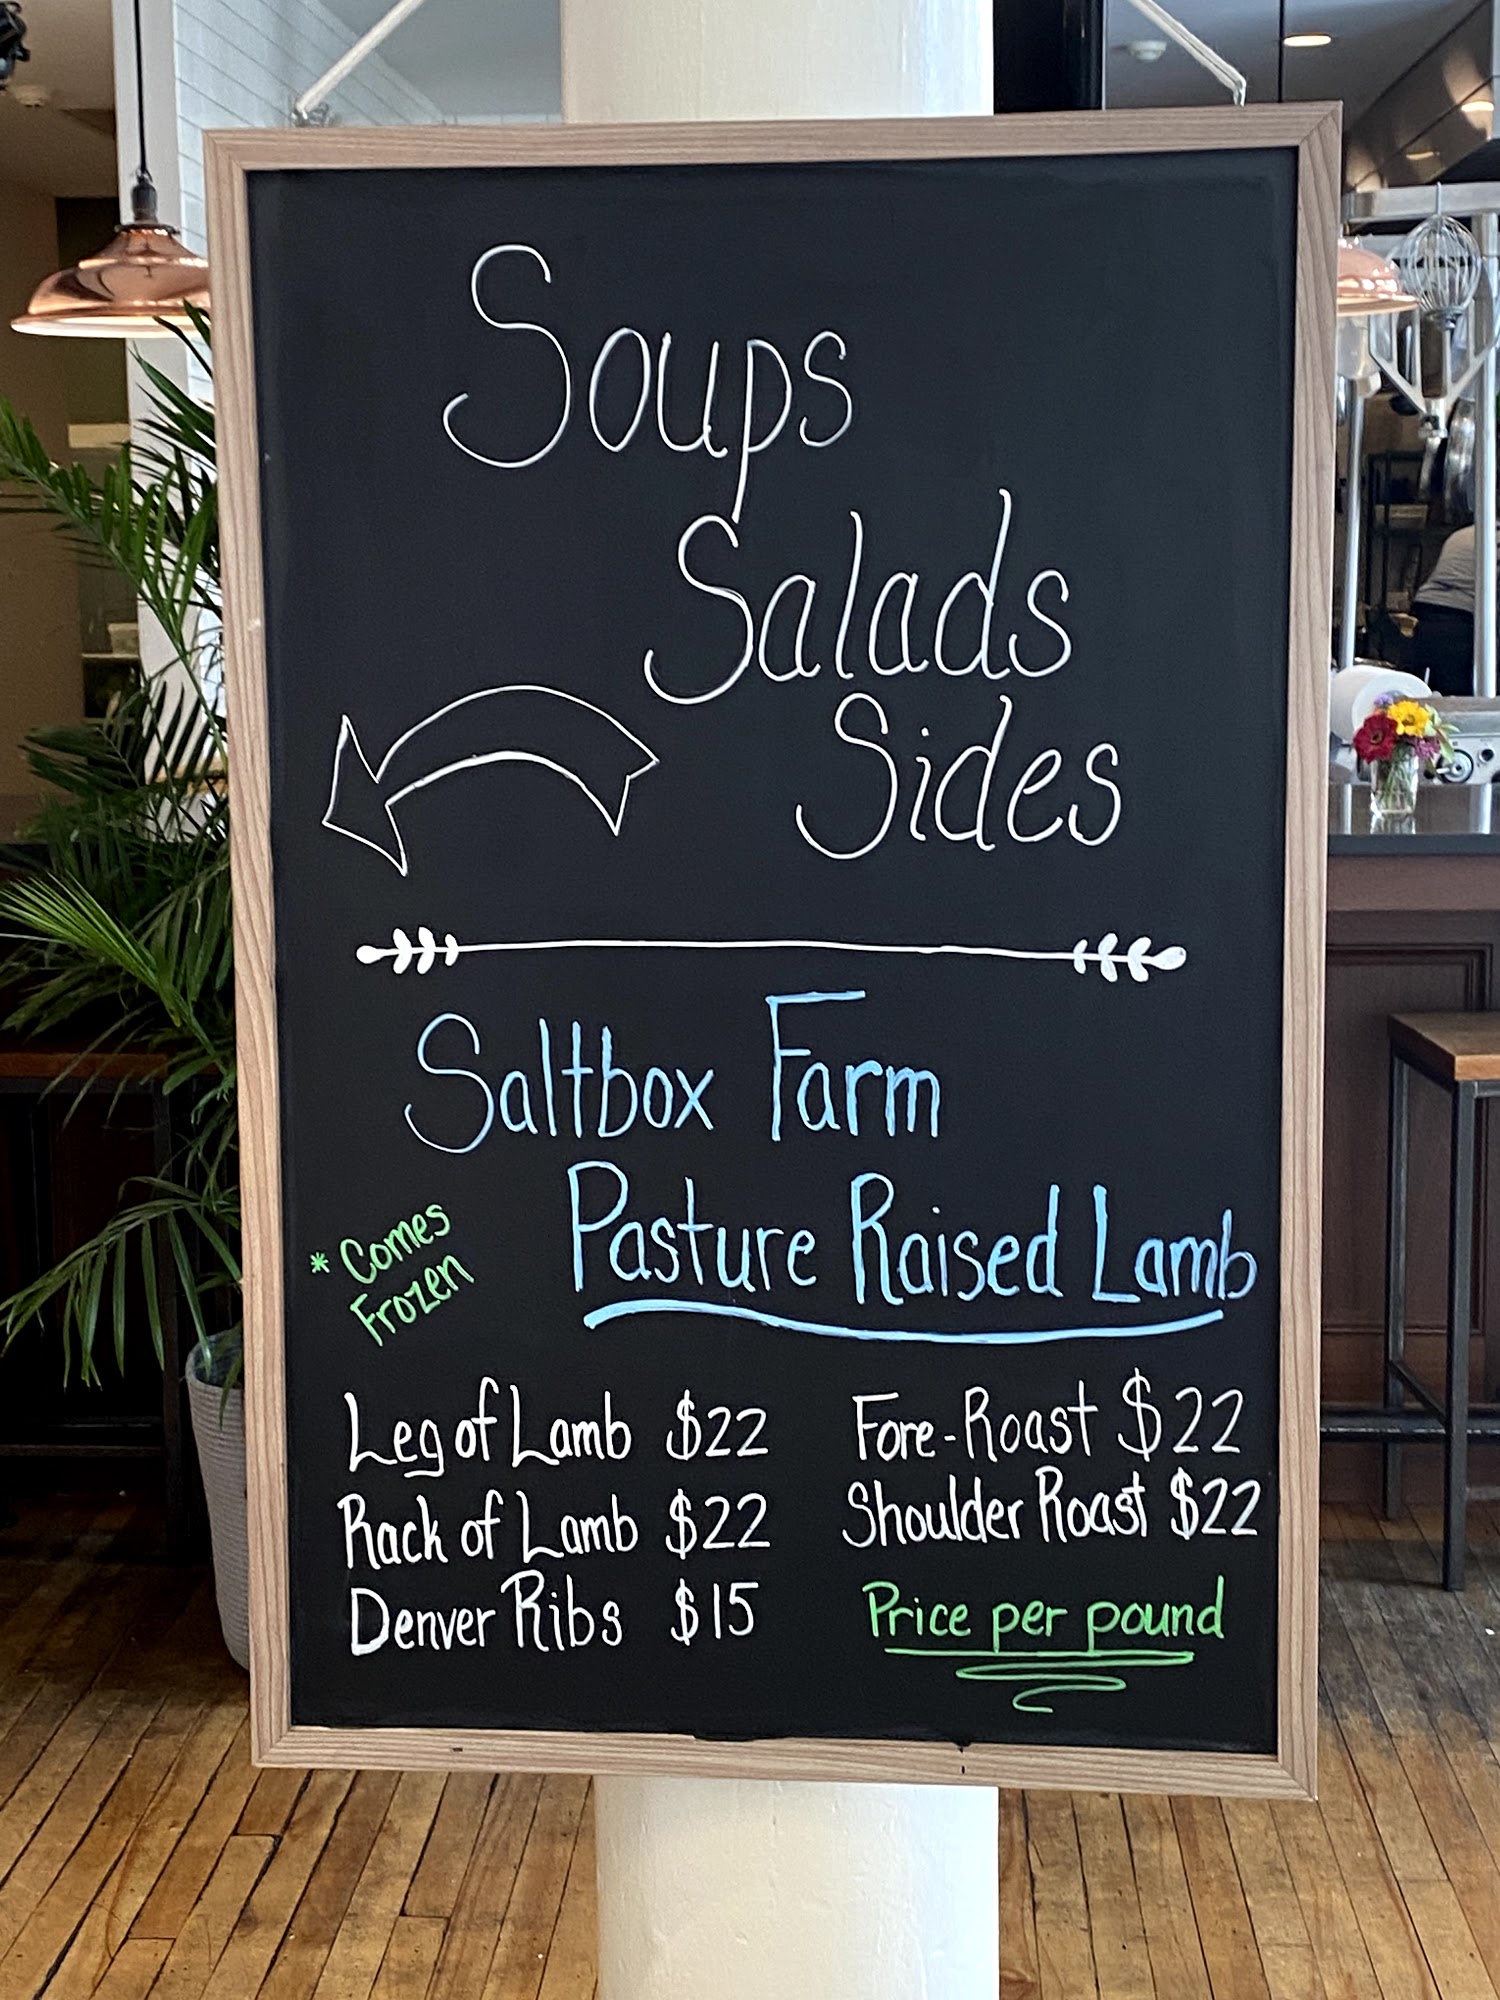 Soups
Salads
Sides
Saltbox Farm
Pasture Raised Lamb
* Comes
Frozen
Leg of Lamb $22
Rack of Lamb $22
Denver Ribs $15
Fore-Roast $22
Shoulder Roast $22
Price per pound